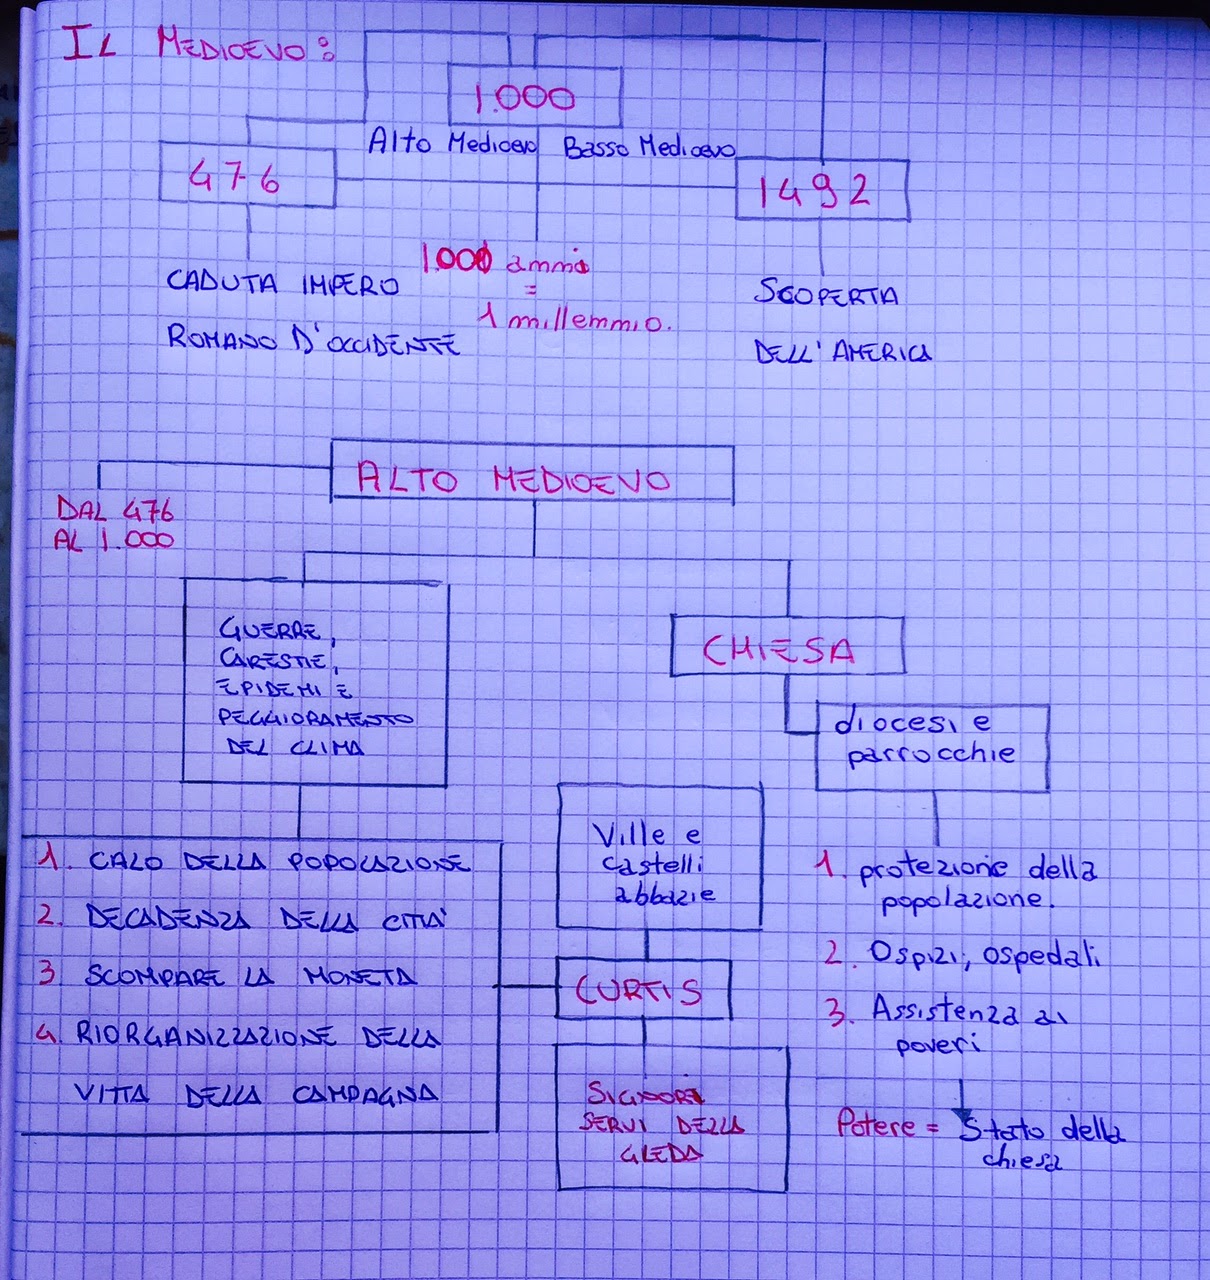 IL MEDIOEVO:
1.000
Alto Medioevo Basso Medioevo
476
1492
1.000 anni
=
1 millennio.
CADUTA IMPERO
ROMANO D'OCCIDENTE
SCOPERTA
DELL'AMERICA
ALTO MEDIOEVO
DAL 476
AL 1.000
GUERRE,
CARESTIE,
EPIDEMI E
PEGGIORAMENTO
DEL CLIMA
CHIESA
diocesi e
parrocchie
1. CALO DELLA POPOLAZIONE
2. DECADENZA DELLA CITTA'
3. SCOMPARE LA MONETA
4. RIORGANIZZAZIONE DELLA
VITTA DELLA CAMPAGNA
Ville e
castelli
abbazie
CURTIS
SIGNORI
SERVI DELLA
GLEDA
1. protezione della
popolazione.
2. Ospizi, ospedali
3. Assistenza ai
poveri
Potere = Stato della
chiesa